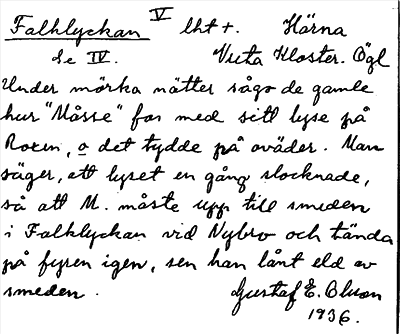 Falklyckan V lht +. Härna
Se IV. Vreta Kloster. Ögl
Under mörka nätter sågo de gamle
hur "Måsse" for med sitt lyse på
Roxen, o det tydde på oväder. Man
säger, att lyset en gång slocknade,
så att M. måste upp till smeden
i Falklyckan vid Nybro och tända
på fyren igen, sen han lånt eld av
smeden. Gustaf E. Olsson
1936.